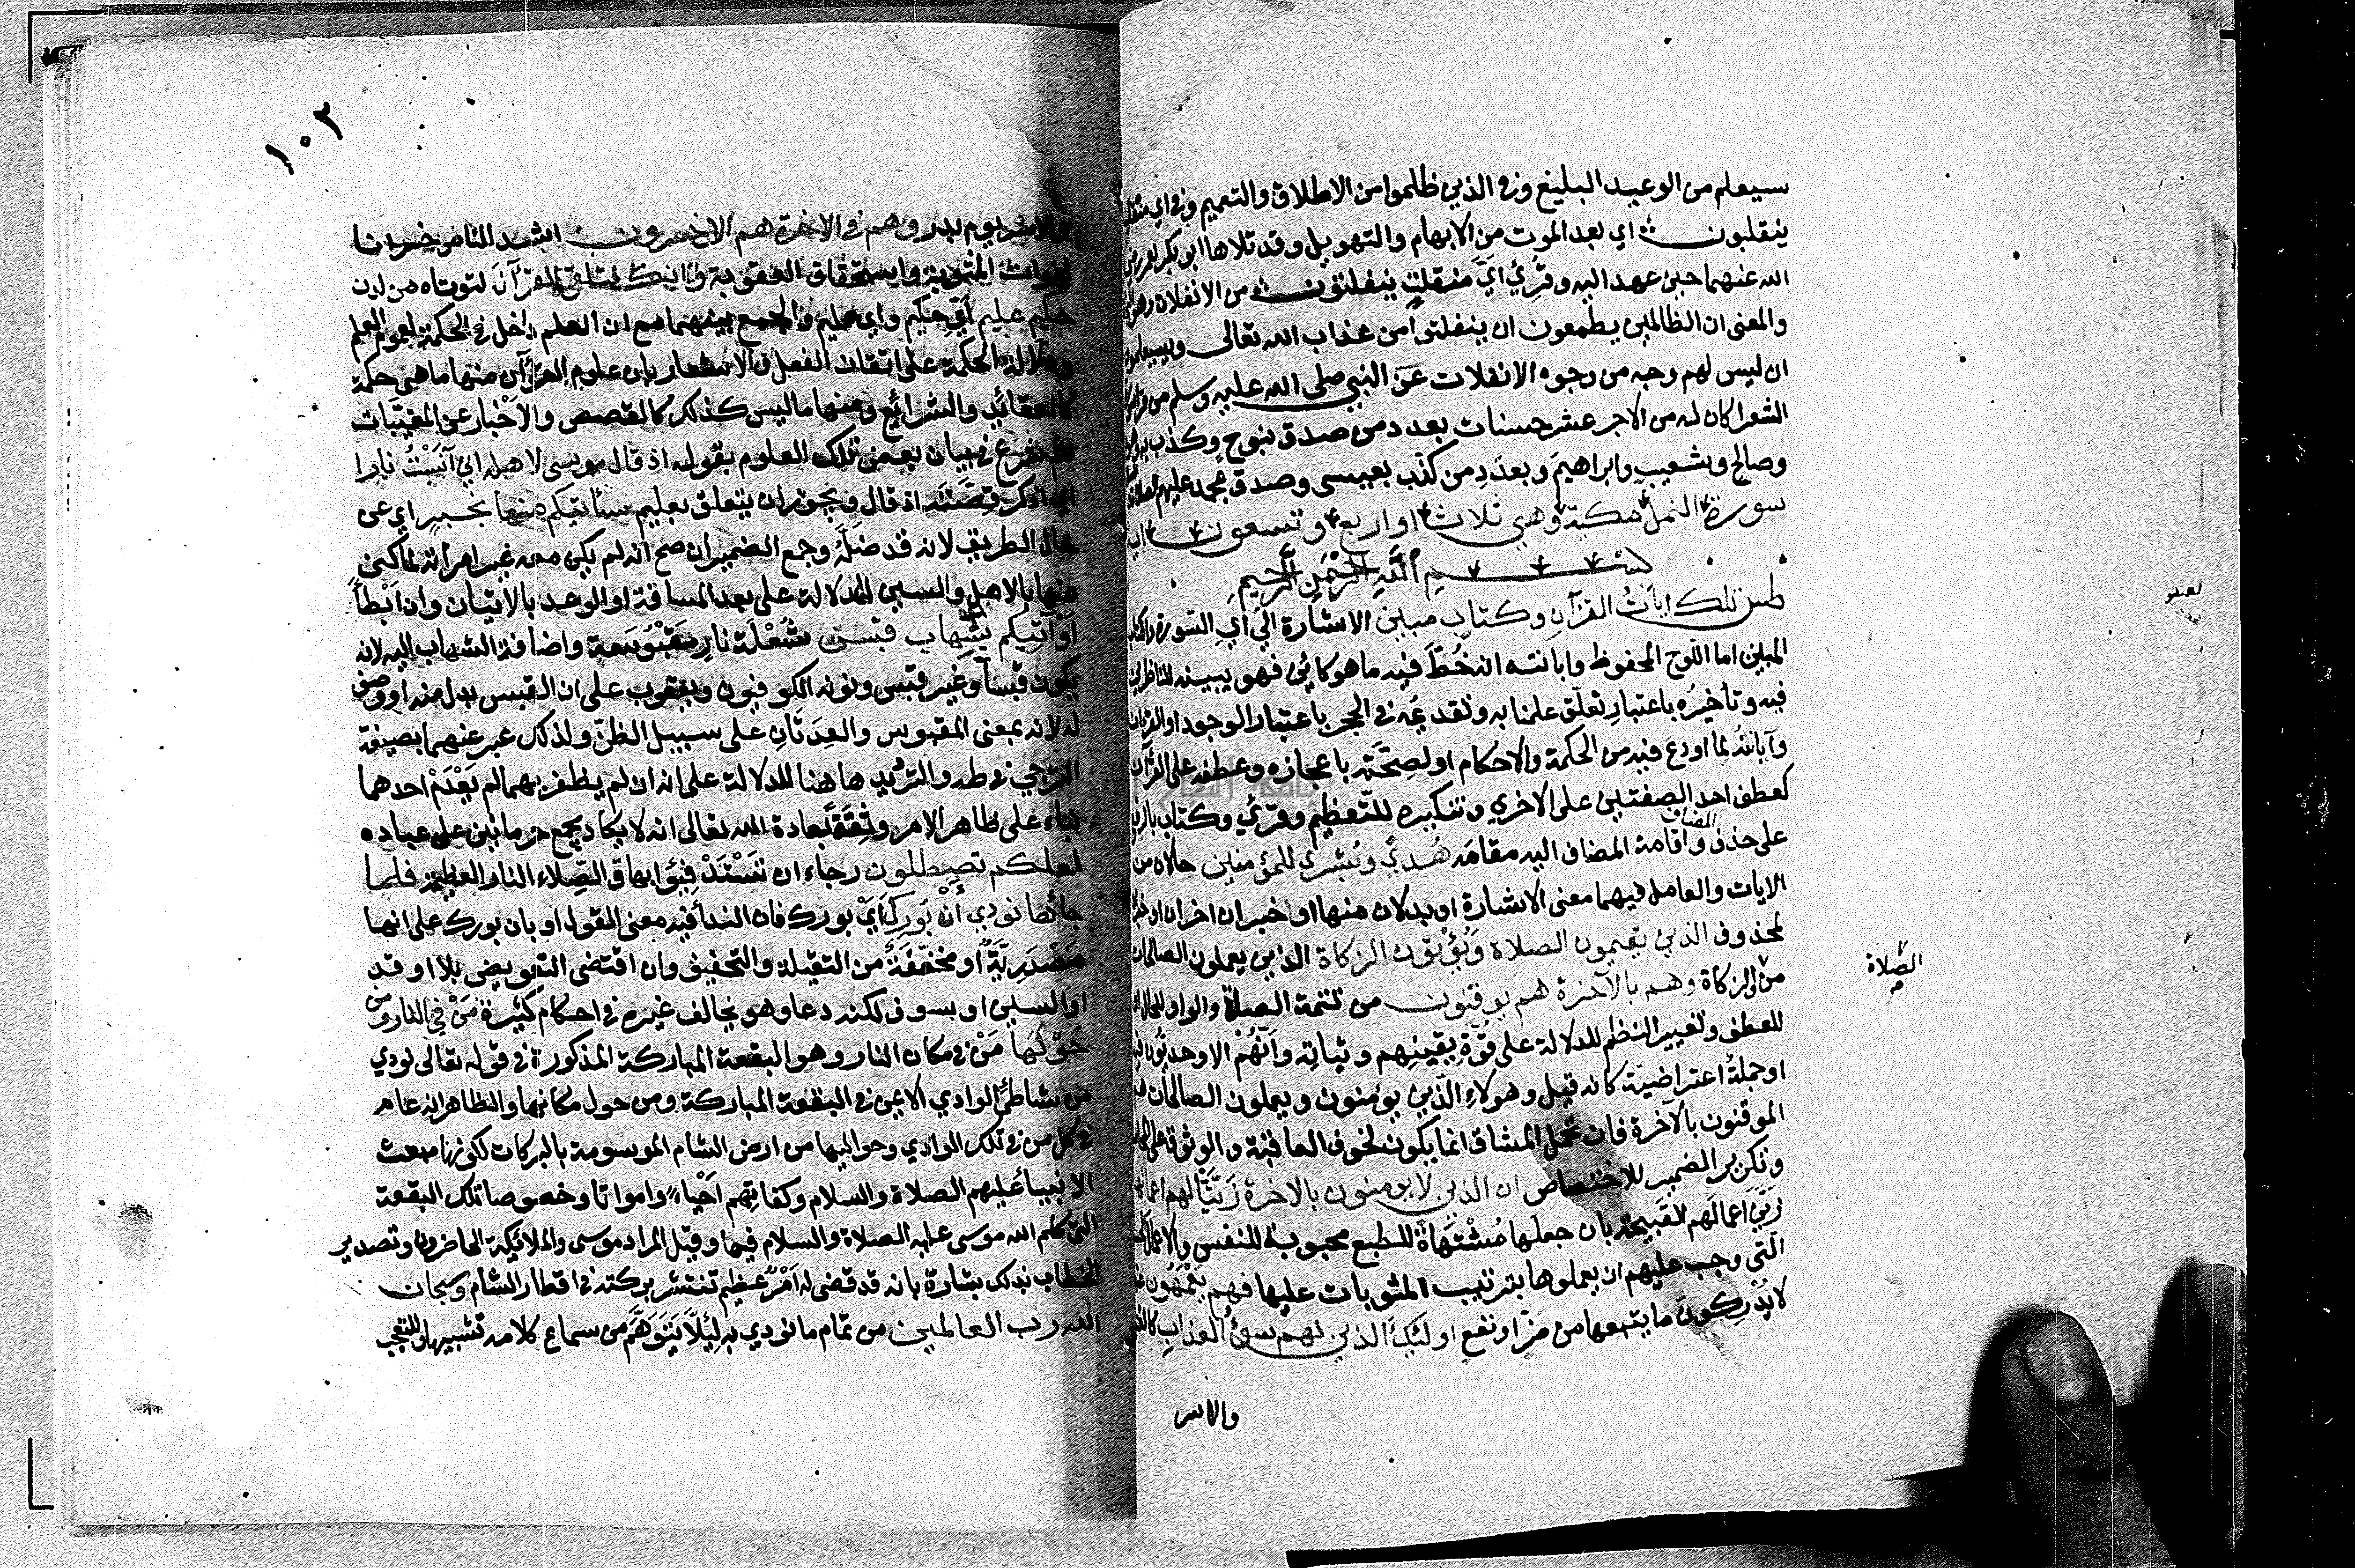 سيعلم من الوعيد البليغ وفي الذين ظلموا من الاطلاق والتعميم وفي اي منقلب
ينقلبون اي بعد الموت من الابهام والتهويل وقد تلاها ابو بكر لعمر رضي
الله عنهما حين عهد اليه وقرئ اي منفلت ينفلتون من الانفلات وهو
والمعنى ان الظالمين يطمعون ان ينفلتوا من عذاب الله تعالى وسيعلمون
ان ليس لهم وجه من وجوه الانفلات عن النبي صلى الله عليه وسلم من قرأ
الشعرا كان له من الاجر عشر حسنات بعدد من صدق بنوح وكذب به
وصالح وشعيب وابراهيم وبعدد من كذب بعيسى وصدق بمحمد عليهم الصلاة
سورة النمل مكية وهي ثلاث او اربع وتسعون
بسم الله الرحمن الرحيم
طس تلك ايات القرآن وكتاب مبين الاشارة الى آي السورة والكتاب
المبين اما اللوح المحفوظ وابانته انه خط فيه ما هو كائن فهو يبينه للناظرين
فيه وتأخيره باعتبار تعلق علمنا به وتقديمه في الحجر باعتبار الوجود او القرآن
وابانته لما اودع فيه من الحكمة والاحكام او لصحته باعجازه وعطفه على القرآن
كعطف احد الصفتين على الاخري وتنكيره للتعظيم وقرئ وكتاب بالرفع
على حذف المضاف واقامة المضاف اليه مقامه هدى وبشرى للمؤمنين حالان من
الايات والعامل فيهما معنى الاشارة او بدلان منها او خبران اخران او خبران
لمحذوف الذين يقيمون الصلاة ويؤتون الزكاة الذين يعملون الصالحات
من الصلاة والزكاة وهم بالآخرة هم يوقنون من تتمة الصلة والواو للحال او
للعطف وتغيير النظم للدلالة على قوة يقينهم وثباته وانهم الاوحديون فيه
او جملة اعتراضية كانه قيل وهولاء الذين يؤمنون ويعملون الصالحات هم
الموقنون بالآخرة فان تحمل المشاق انما يكون لخوف العاقبة والوثوق على
وتكرير الضمير للاختصاص ان الذين لا يومنون بالاخرة زينا لهم اعمالهم
زين اعمالهم القبيحة بان جعلها مشتهاة للطبع محبوبة للنفس والاعمال
التي وجب عليهم ان يعملوها بترتيب المثوبات عليها فهم يعمهون
لا يدركون ما يتبعها من ضر او نفع اولئك الذين لهم سوء العذاب كالقتل
والاسر
١٠٢
والاسر يوم بدر وهم في الاخرة هم الاخسرون اشد الناس خسرانا
لفوات المثوبة واستحقاق العقوبة وانك لتلقى القرآن لتؤتاه من لدن
حكيم عليم اي حكيم واي عليم والجمع بينهما مع ان العلم داخل في الحكمة لعموم العلم
ودلالة الحكمة على اتقان الفعل والاشعار بان علوم القرآن منها ما هي حكمة
كالعقائد والشرائع ومنها ما ليس كذلك كالقصص والاخبار عن المغيبات
ثم شرع في بيان بعض تلك العلوم بقوله اذ قال موسى لاهله اني آنست نارا
اي اذكر قصته اذ قال ويجوز ان يتعلق بعليم سآتيكم منها بخبر اي عن
حال الطريق لانه قد ضله وجمع الضمير ان صح انه لم يكن معه غير امرأته لما كنى
عنها بالاهل والسين للدلالة على بعد المسافة او الوعد بالاتيان وان ابطأ
او آتيكم بشهاب قبس شعلة نار مقبوسة واضافة الشهاب اليه لانه
يكون قبسا وغير قبس ونونه الكوفيون ويعقوب على ان القبس بدل منه او وصف
له لانه بمعنى المقبوس والعدتان على سبيل الظن ولذلك عبر عنهما بصيغة
الترجي في طه والترديد هاهنا للدلالة على انه ان لم يظفر بهما لم يعدم احدهما
بناء على ظاهر الامر وثقة بعادة الله تعالى انه لا يكاد يجمع حرمانين على عباده
لعلكم تصطلون رجاء ان تستدفئوا بها والصلاء النار العظيمة فلما
جائها نودي أن بورك اي بورك فان الندا فيه معنى القول او بان بورك على انها
مصدرية او مخففة من الثقيلة والتخفيف وان اقتضى التعويض بلا او قد
او السين او سوف لكنه دعا وهو يخالف غيره في احكام كثيرة من في النار ومن
حولها من في مكان النار وهو البقعة المباركة المذكورة في قوله تعالى نودي
من شاطئ الوادي الايمن في البقعة المباركة ومن حول مكانها والظاهر انه عام
في كل من في تلك الوادي وحواليها من ارض الشام الموسومة بالبركات لكونها مبعث
الانبيأ عليهم الصلاة والسلام وكفاتهم احياء وامواتا وخصوصا تلك البقعة
التي كلم الله موسى عليه الصلاة والسلام فيها وقيل المراد موسى والملائكة الحاضرون وتصدير
الخطاب بذلك بشارة بانه قد قضي له امر عظيم تنتشر بركته في اقطار الشام وسبحان
الله رب العالمين من تمام ما نودي به لئلا يتوهم من سماع كلامه تشبيها وللتعجب